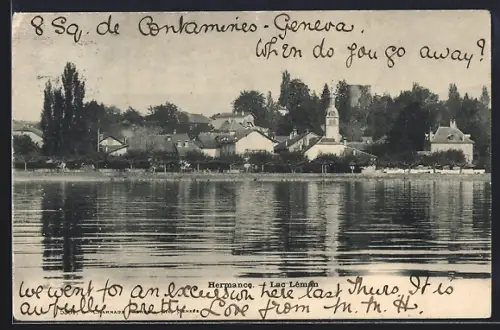 8 Sq. de Contamines - Geneva.
When do you go away?
Hermance. Lac Léman
We went for an excursion here last Thurs. It is
awfully pretty Love from M. M. H.